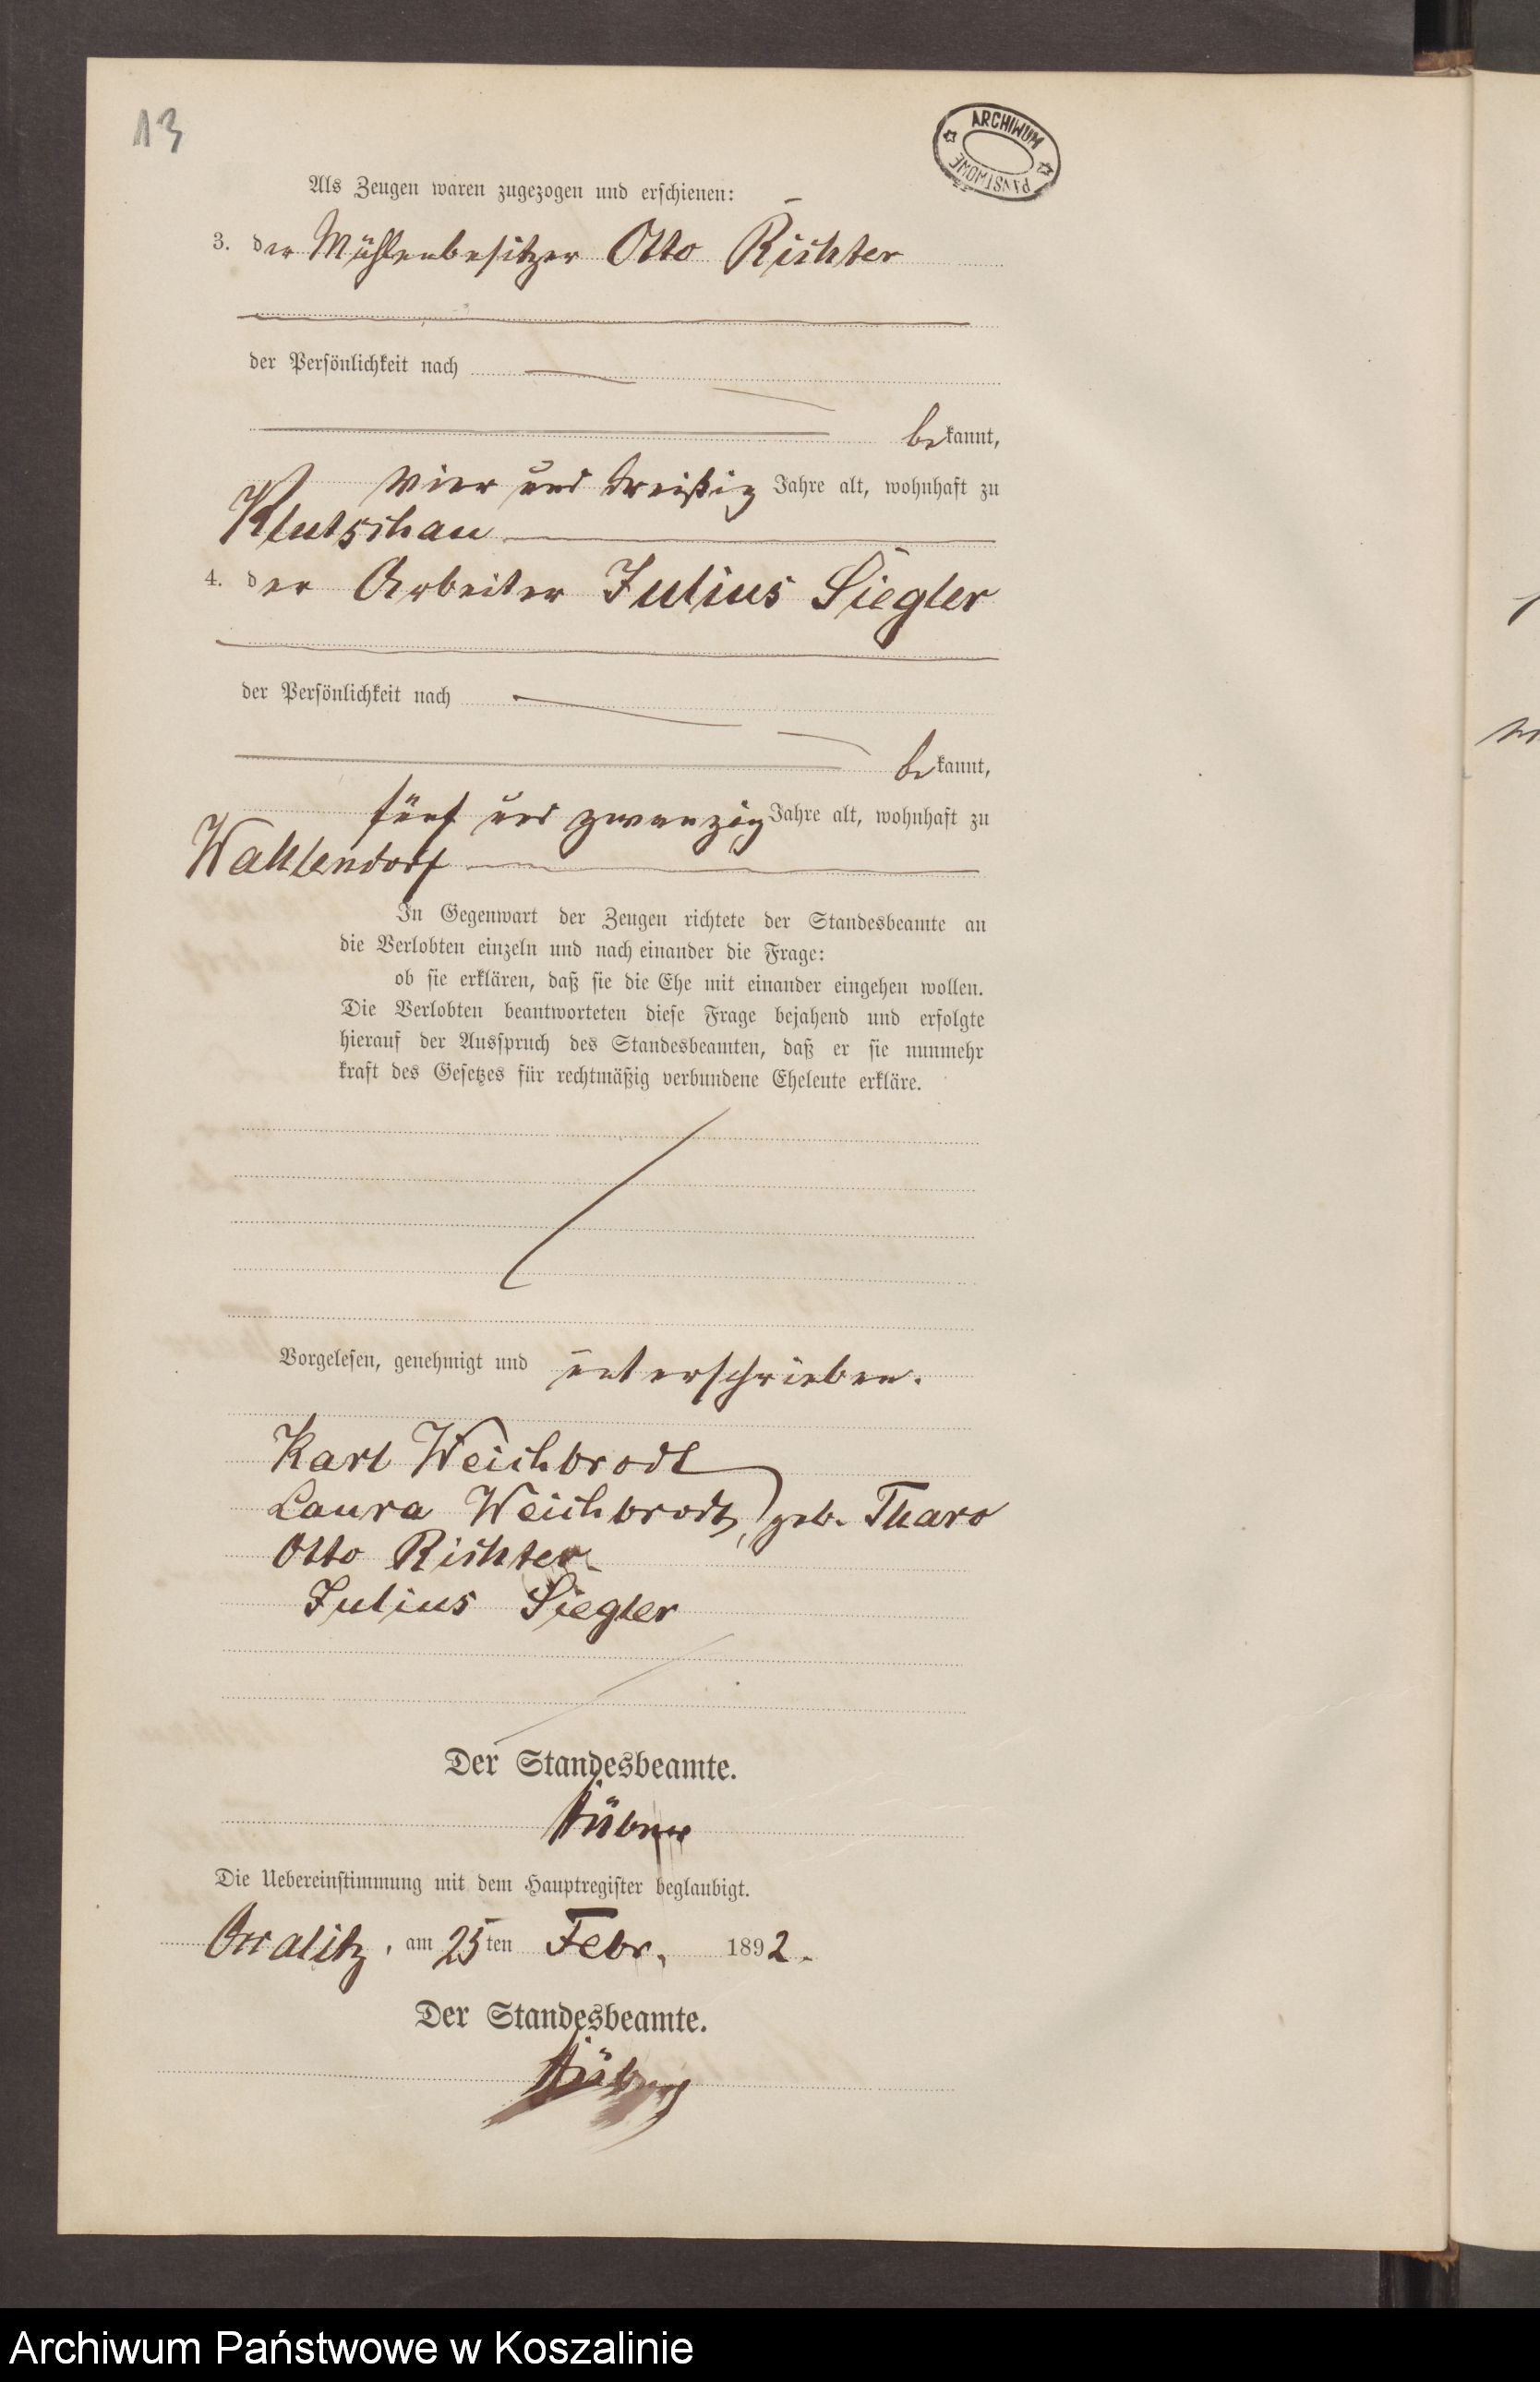 13
ARCHIWUM PAŃSTWOWE
Als Zeugen waren zugezogen und erschienen:
3. der Mühlenbesitzer Otto Richter
der Persönlichkeit nach
bekannt,
vier und dreißig Jahre alt, wohnhaft zu
Klutschau
4. der Arbeiter Julius Siegler
der Persönlichkeit nach
bekannt,
fünf und zwanzig Jahre alt, wohnhaft zu
Wahlendorf
In Gegenwart der Zeugen richtete der Standesbeamte an
die Verlobten einzeln und nach einander die Frage:
ob sie erklären, daß sie die Ehe mit einander eingehen wollen.
Die Verlobten beantworteten diese Frage bejahend und erfolgte
hierauf der Ausspruch des Standesbeamten, daß er sie nunmehr
kraft des Gesetzes für rechtmäßig verbundene Eheleute erkläre.
Vorgelesen, genehmigt und unterschrieben.
Karl Weichbrodt
Laura Weichbrodt, geb. Tharo
Otto Richter
Julius Siegler
Der Standesbeamte.
Die Uebereinstimmung mit dem Hauptregister beglaubigt.
am 25ten Febr. 1892.
Der Standesbeamte.
Archiwum Państwowe w Koszalinie